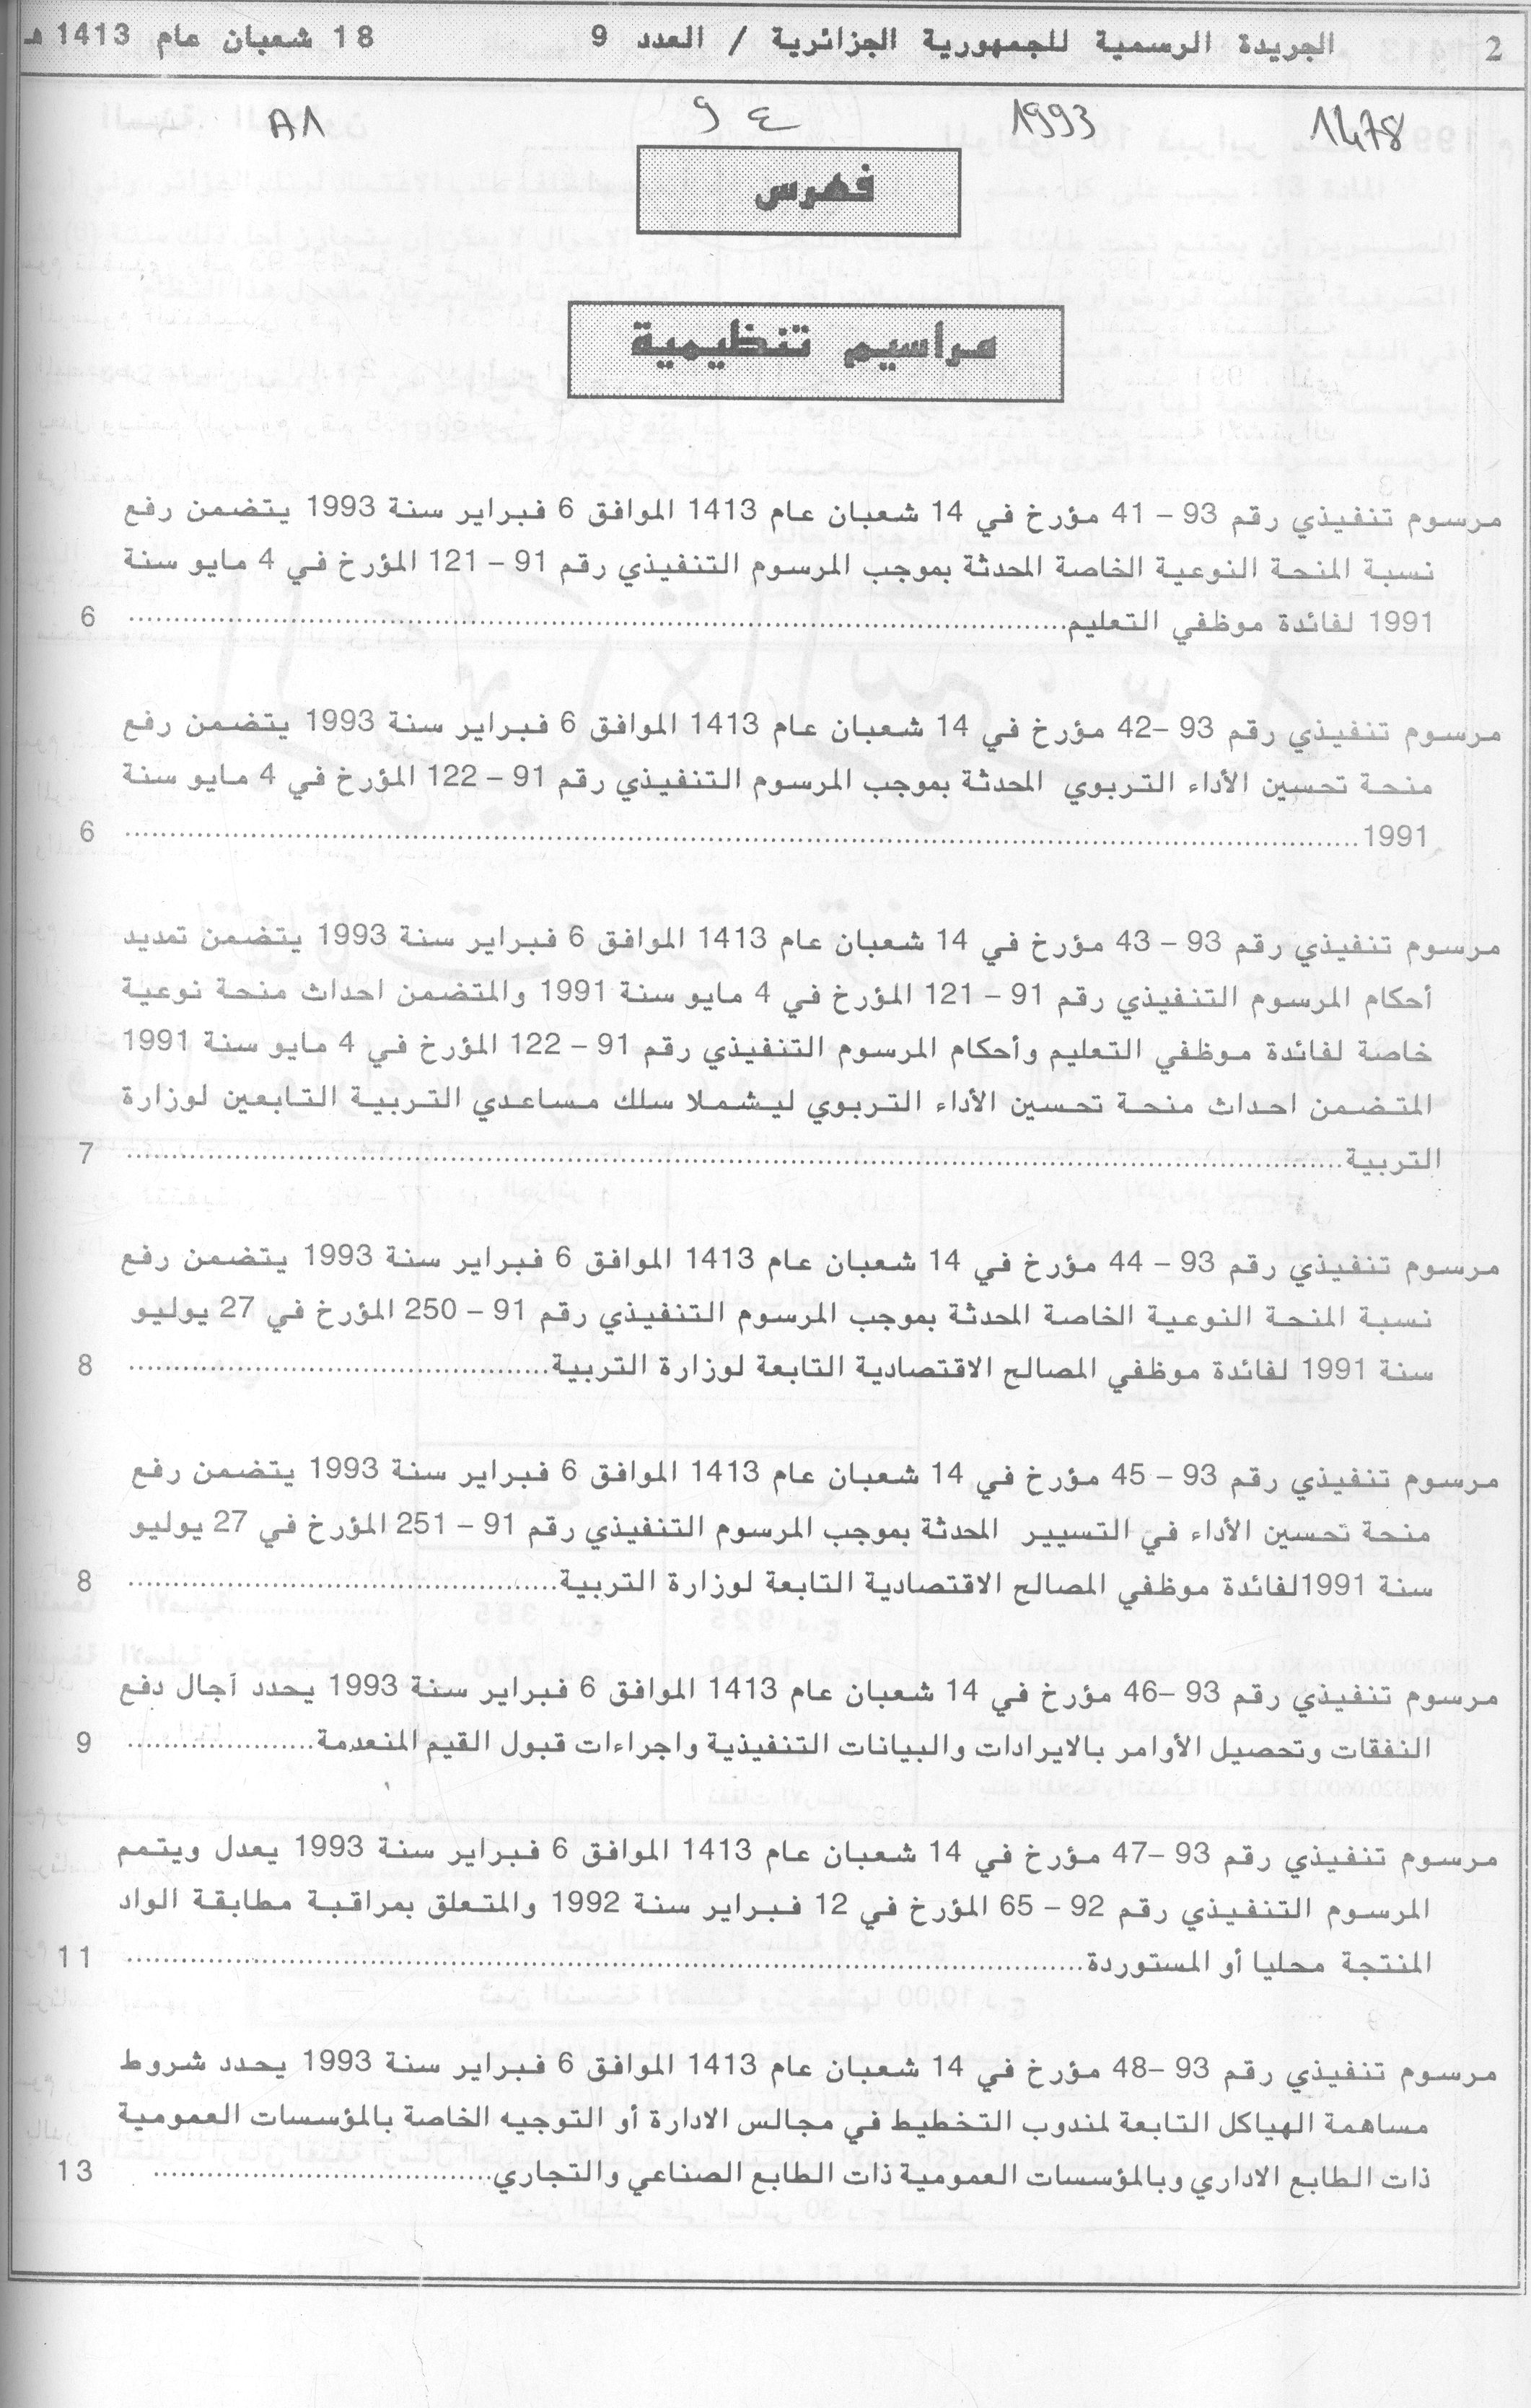 2 الجريدة الرسمية للجمهورية الجزائرية / العدد 9 18 شعبان عام 1413 هـ
1478 1993 ع 9 A1
فهرس
مراسيم تنظيمية
مرسوم تنفيذي رقم 93 – 41 مؤرخ في 14 شعبان عام 1413 الموافق 6 فبراير سنة 1993 يتضمن رفع
نسبة المنحة النوعية الخاصة المحدثة بموجب المرسوم التنفيذي رقم 91 – 121 المؤرخ في 4 مايو سنة
1991 لفائدة موظفي التعليم........................................ 6
مرسوم تنفيذي رقم 93 –42 مؤرخ في 14 شعبان عام 1413 الموافق 6 فبراير سنة 1993 يتضمن رفع
منحة تحسين الأداء التربوي المحدثة بموجب المرسوم التنفيذي رقم 91 – 122 المؤرخ في 4 مايو سنة
1991........................................ 6
مرسوم تنفيذي رقم 93 – 43 مؤرخ في 14 شعبان عام 1413 الموافق 6 فبراير سنة 1993 يتضمن تمديد
أحكام المرسوم التنفيذي رقم 91 – 121 المؤرخ في 4 مايو سنة 1991 والمتضمن احداث منحة نوعية
خاصة لفائدة موظفي التعليم وأحكام المرسوم التنفيذي رقم 91 – 122 المؤرخ في 4 مايو سنة 1991
المتضمن احداث منحة تحسين الأداء التربوي ليشملا سلك مساعدي التربية التابعين لوزارة
التربية........................................ 7
مرسوم تنفيذي رقم 93 – 44 مؤرخ في 14 شعبان عام 1413 الموافق 6 فبراير سنة 1993 يتضمن رفع
نسبة المنحة النوعية الخاصة المحدثة بموجب المرسوم التنفيذي رقم 91 – 250 المؤرخ في 27 يوليو
سنة 1991 لفائدة موظفي المصالح الاقتصادية التابعة لوزارة التربية........................................ 8
مرسوم تنفيذي رقم 93 – 45 مؤرخ في 14 شعبان عام 1413 الموافق 6 فبراير سنة 1993 يتضمن رفع
منحة تحسين الأداء في التسيير المحدثة بموجب المرسوم التنفيذي رقم 91 – 251 المؤرخ في 27 يوليو
سنة 1991لفائدة موظفي المصالح الاقتصادية التابعة لوزارة التربية........................................ 8
مرسوم تنفيذي رقم 93 –46 مؤرخ في 14 شعبان عام 1413 الموافق 6 فبراير سنة 1993 يحدد آجال دفع
النفقات وتحصيل الأوامر بالايرادات والبيانات التنفيذية واجراءات قبول القيم المنعدمة.................... 9
مرسوم تنفيذي رقم 93 –47 مؤرخ في 14 شعبان عام 1413 الموافق 6 فبراير سنة 1993 يعدل ويتمم
المرسوم التنفيذي رقم 92 – 65 المؤرخ في 12 فبراير سنة 1992 والمتعلق بمراقبة مطابقة الواد
المنتجة محليا أو المستوردة........................................ 11
مرسوم تنفيذي رقم 93 –48 مؤرخ في 14 شعبان عام 1413 الموافق 6 فبراير سنة 1993 يحدد شروط
مساهمة الهياكل التابعة لمندوب التخطيط في مجالس الادارة أو التوجيه الخاصة بالمؤسسات العمومية
ذات الطابع الاداري وبالمؤسسات العمومية ذات الطابع الصناعي والتجاري.............................. 13